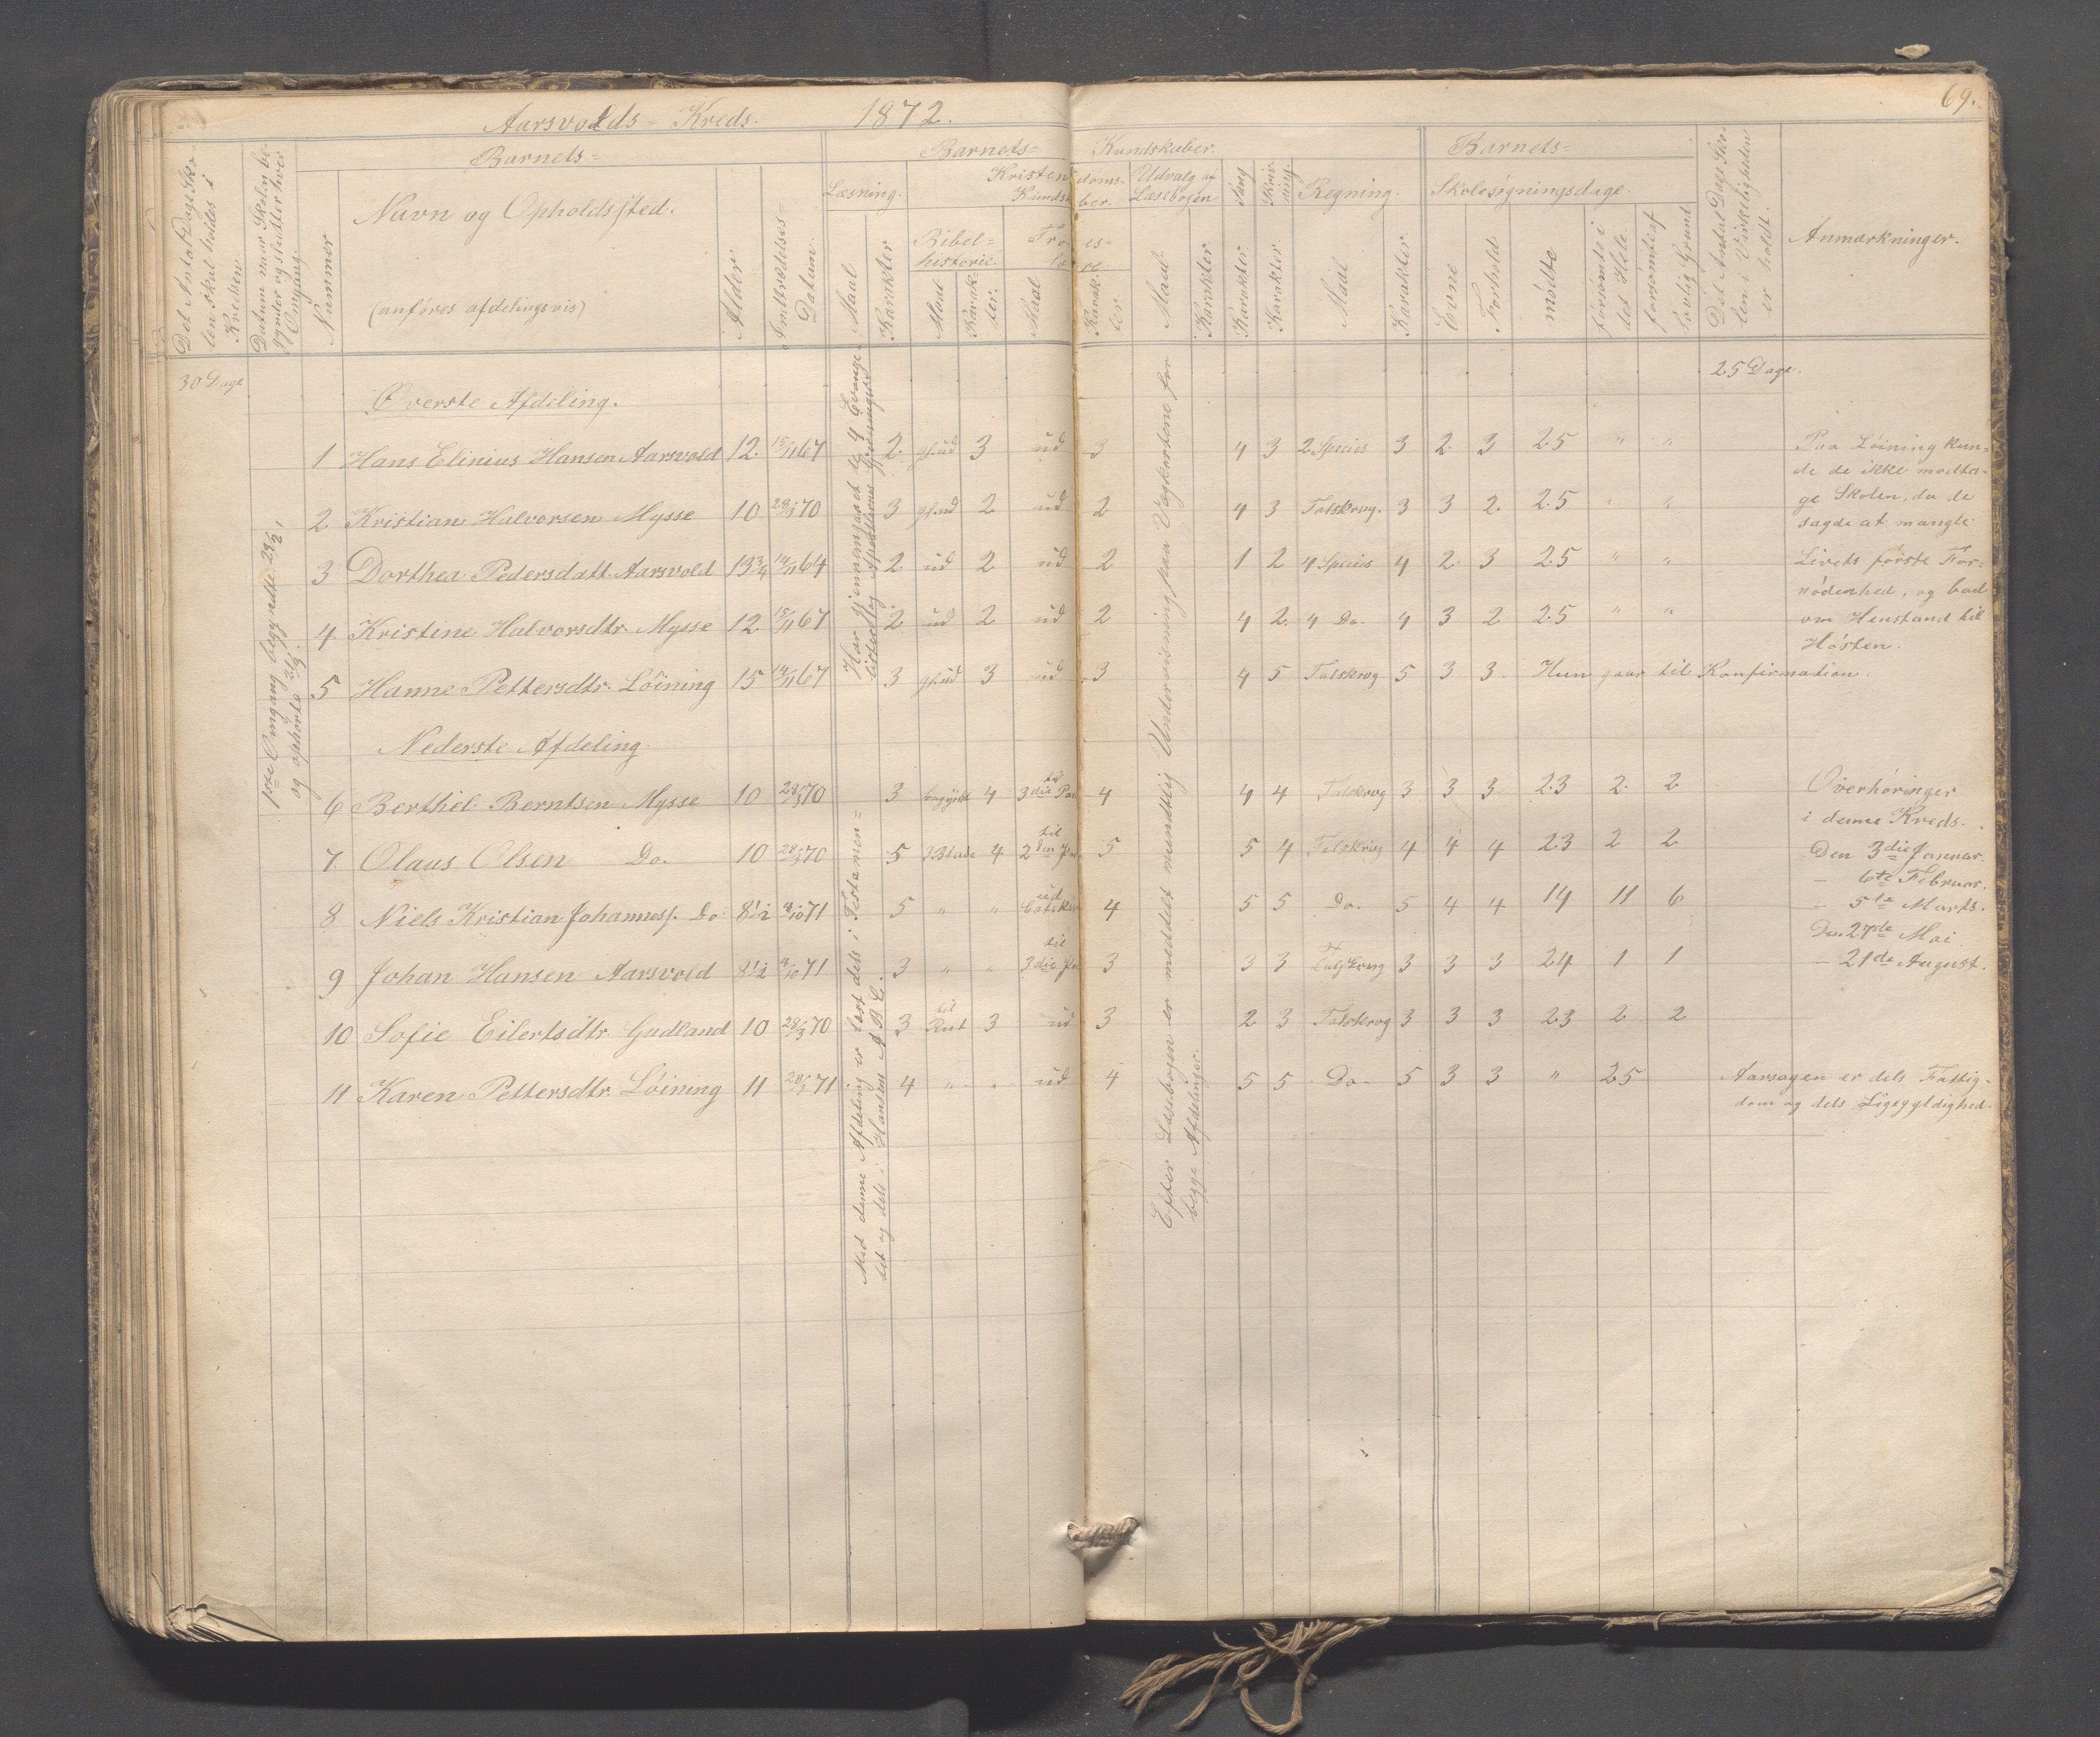 69.
Aarsvolds- Kreds. 1872.
Det Antal Dage Skolen skal holdes i Kredsen
Datum naar Skolen begynder og slutter hver Omgang.
Barnets-
Nummer
Navn og Opholdssted.
(anføres afdelingsvis)
Alder
Indtrædelses-Datum.
Barnets- Kundskaber.
Læsning. Maal Karakter
Kristendoms-Kundskaber.
Bibel-historie. Maal Karakter.
Troeslære. Maal Karakter
Udvalg af Læsebogen Maal. Karakter
Sang Karakter.
Skrivning. Karakter.
Regning. Maal Karakter.
Barnets- Skolesøgningsdage.
Evne Forhold mødte forsømte i det Hele. forsømte af lovlig Grund
Det Antal Dage Skolen i Virkeligheden er holdt.
Anmærkninger.
30 Dage 25 Dage.
1ste Omgang begyndte 28/2 1
og ophørte 2/3.
Øverste Afdeling.
Har gjennemgaaet de 4 Evangelister og Apostlernes Gjerninger.
1 Hans Elinius Hansen Aarsvold 12. 15/11 67 2. gl.ud 3 ud 3 4 3 2 Species 3 2. 3 25 " "
2 Kristian Halvorsen Mysse 10 28/3 70 3 gl.ud 2 ud 2 4 3 Talskrvg. 3 3 2. 25 " "
3 Dorthea Pedersdatt. Aarsvold 13 3/4 14/11 64 2 ud 2 ud 2 1 2 4 Species 4 2. 3 25 " "
4 Kristine Halvorsdtr. Mysse 12 15/11 67 2 ud 2 ud 2 4 2. 4 Do. 4 3 2 25 " "
5 Hanne Pettersdtr. Löining 15 14/11 67 3 gl.ud 3 ud 3 4 5 Talskrvg. 5 3 3. Hun gaar til Konfirmation.
Paa Löining kun-
de de ikke modta-
ge Skolen, da de
sagde at mangle
Livets første For-
nødenhed, og bad
om Henstand til
Høsten.
Nederste Afdeling.
Med denne Afdeling er læst dels i Testamen-
tet og dels i Hansens A B C.
Efter Læsebogen er meddelt mundtlig Undervisning paa Vægkartene for
begge Afdelinger.
6 Berthel Berntsen Mysse 10 28/3 70 3 begyndt 4 til 3die Part 4 4 4 Talskrvg 3 3 3 23 2. 2
7 Olaus Olsen Do. 10 28/3 70 5 3 Blade 4 til 2den Part 5 5 4 Talskrvg 4 4 4 23 2 2
8 Niels Kristian Johanness. Do 8 1/2 4/10 71 5 " " ud 4 5 5 Do. 5 4 4 14 11 6
9 Johan Hansen Aarsvold 8 1/2 4/10 71 3 " " til 3die Part 3 3 3 Talskrvg 3 3 3 24 1 1
10 Sofie Eilertsdtr. Gudland 10 28/3 70 3 til Rut 3 ud 3 2 3 Talskrvg 3 3 3 23 2 2
11 Karen Pettersdtr. Löining 11 71 4 " " ud 4 5 5 Do. 5 3 3 " 25
Overhøringer
i denne Kreds.
Den 3die Januar.
– 6te Februar.
– 5te Marts.
Den 27de Mai
– 21de August.
Aarsagen er dels Fattig-
dom og dels Ligegyldighed.